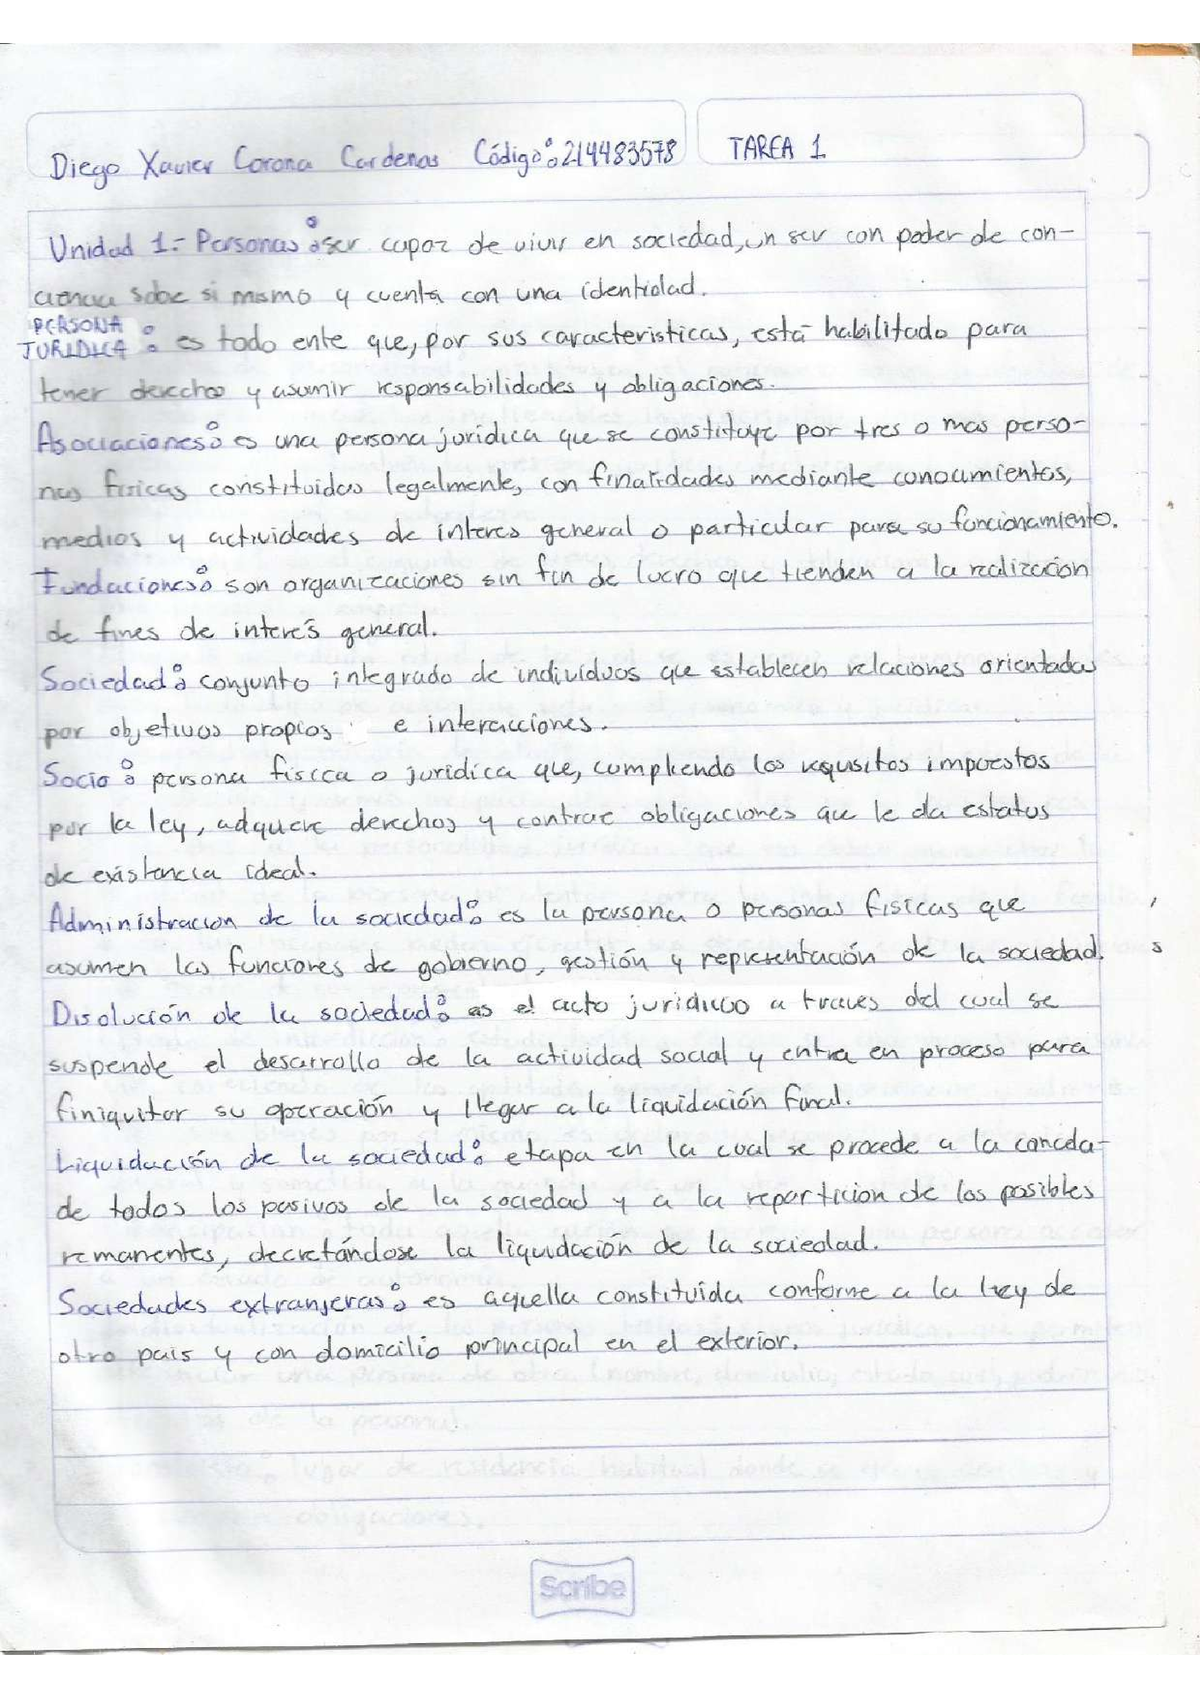 Diego Xavier Corona Cardenas Código: 214483578 TAREA 1
Unidad 1.- Personas: ser capaz de vivir en sociedad, un ser con poder de con-
ciencia sobe si mismo y cuenta con una identidad.
PERSONA
JURIDICA : es todo ente que, por sus caracteristicas, está habilitado para
tener derechos y asumir responsabilidades y obligaciones.
Asociaciones: es una persona jurídica que se constituye por tres o mas perso-
nas fisicas constituidas legalmente, con finalidades mediante conocimientos,
medios y actividades de interes general o particular para su funcionamiento.
Fundaciones: son organizaciones sin fin de lucro que tienden a la realización
de fines de interés general.
Sociedad: conjunto integrado de individuos que establecen relaciones orientadas
por objetivos propios e interacciones.
Socio: persona física o jurídica que, cumpliendo los requisitos impuestos
por la ley, adquiere derechos y contrae obligaciones que le da estatus
de existencia ideal.
Administracion de la sociedad: es la persona o personas fisicas que
asumen las funciones de gobierno, gestión y representación de la sociedad.
Disolución de la sociedad: es el acto juridico a traves del cual se
suspende el desarrollo de la actividad social y entra en proceso para
finiquitar su operación y llegar a la liquidación final.
Liquidación de la sociedad: etapa en la cual se procede a la cancela-
de todos los pasivos de la sociedad y a la reparticion de los posibles
remanentes, decretándose la liquidación de la sociedad.
Sociedades extranjeras: es aquella constituida conforme a la ley de
otro pais y con domicilio principal en el exterior.
Scribe